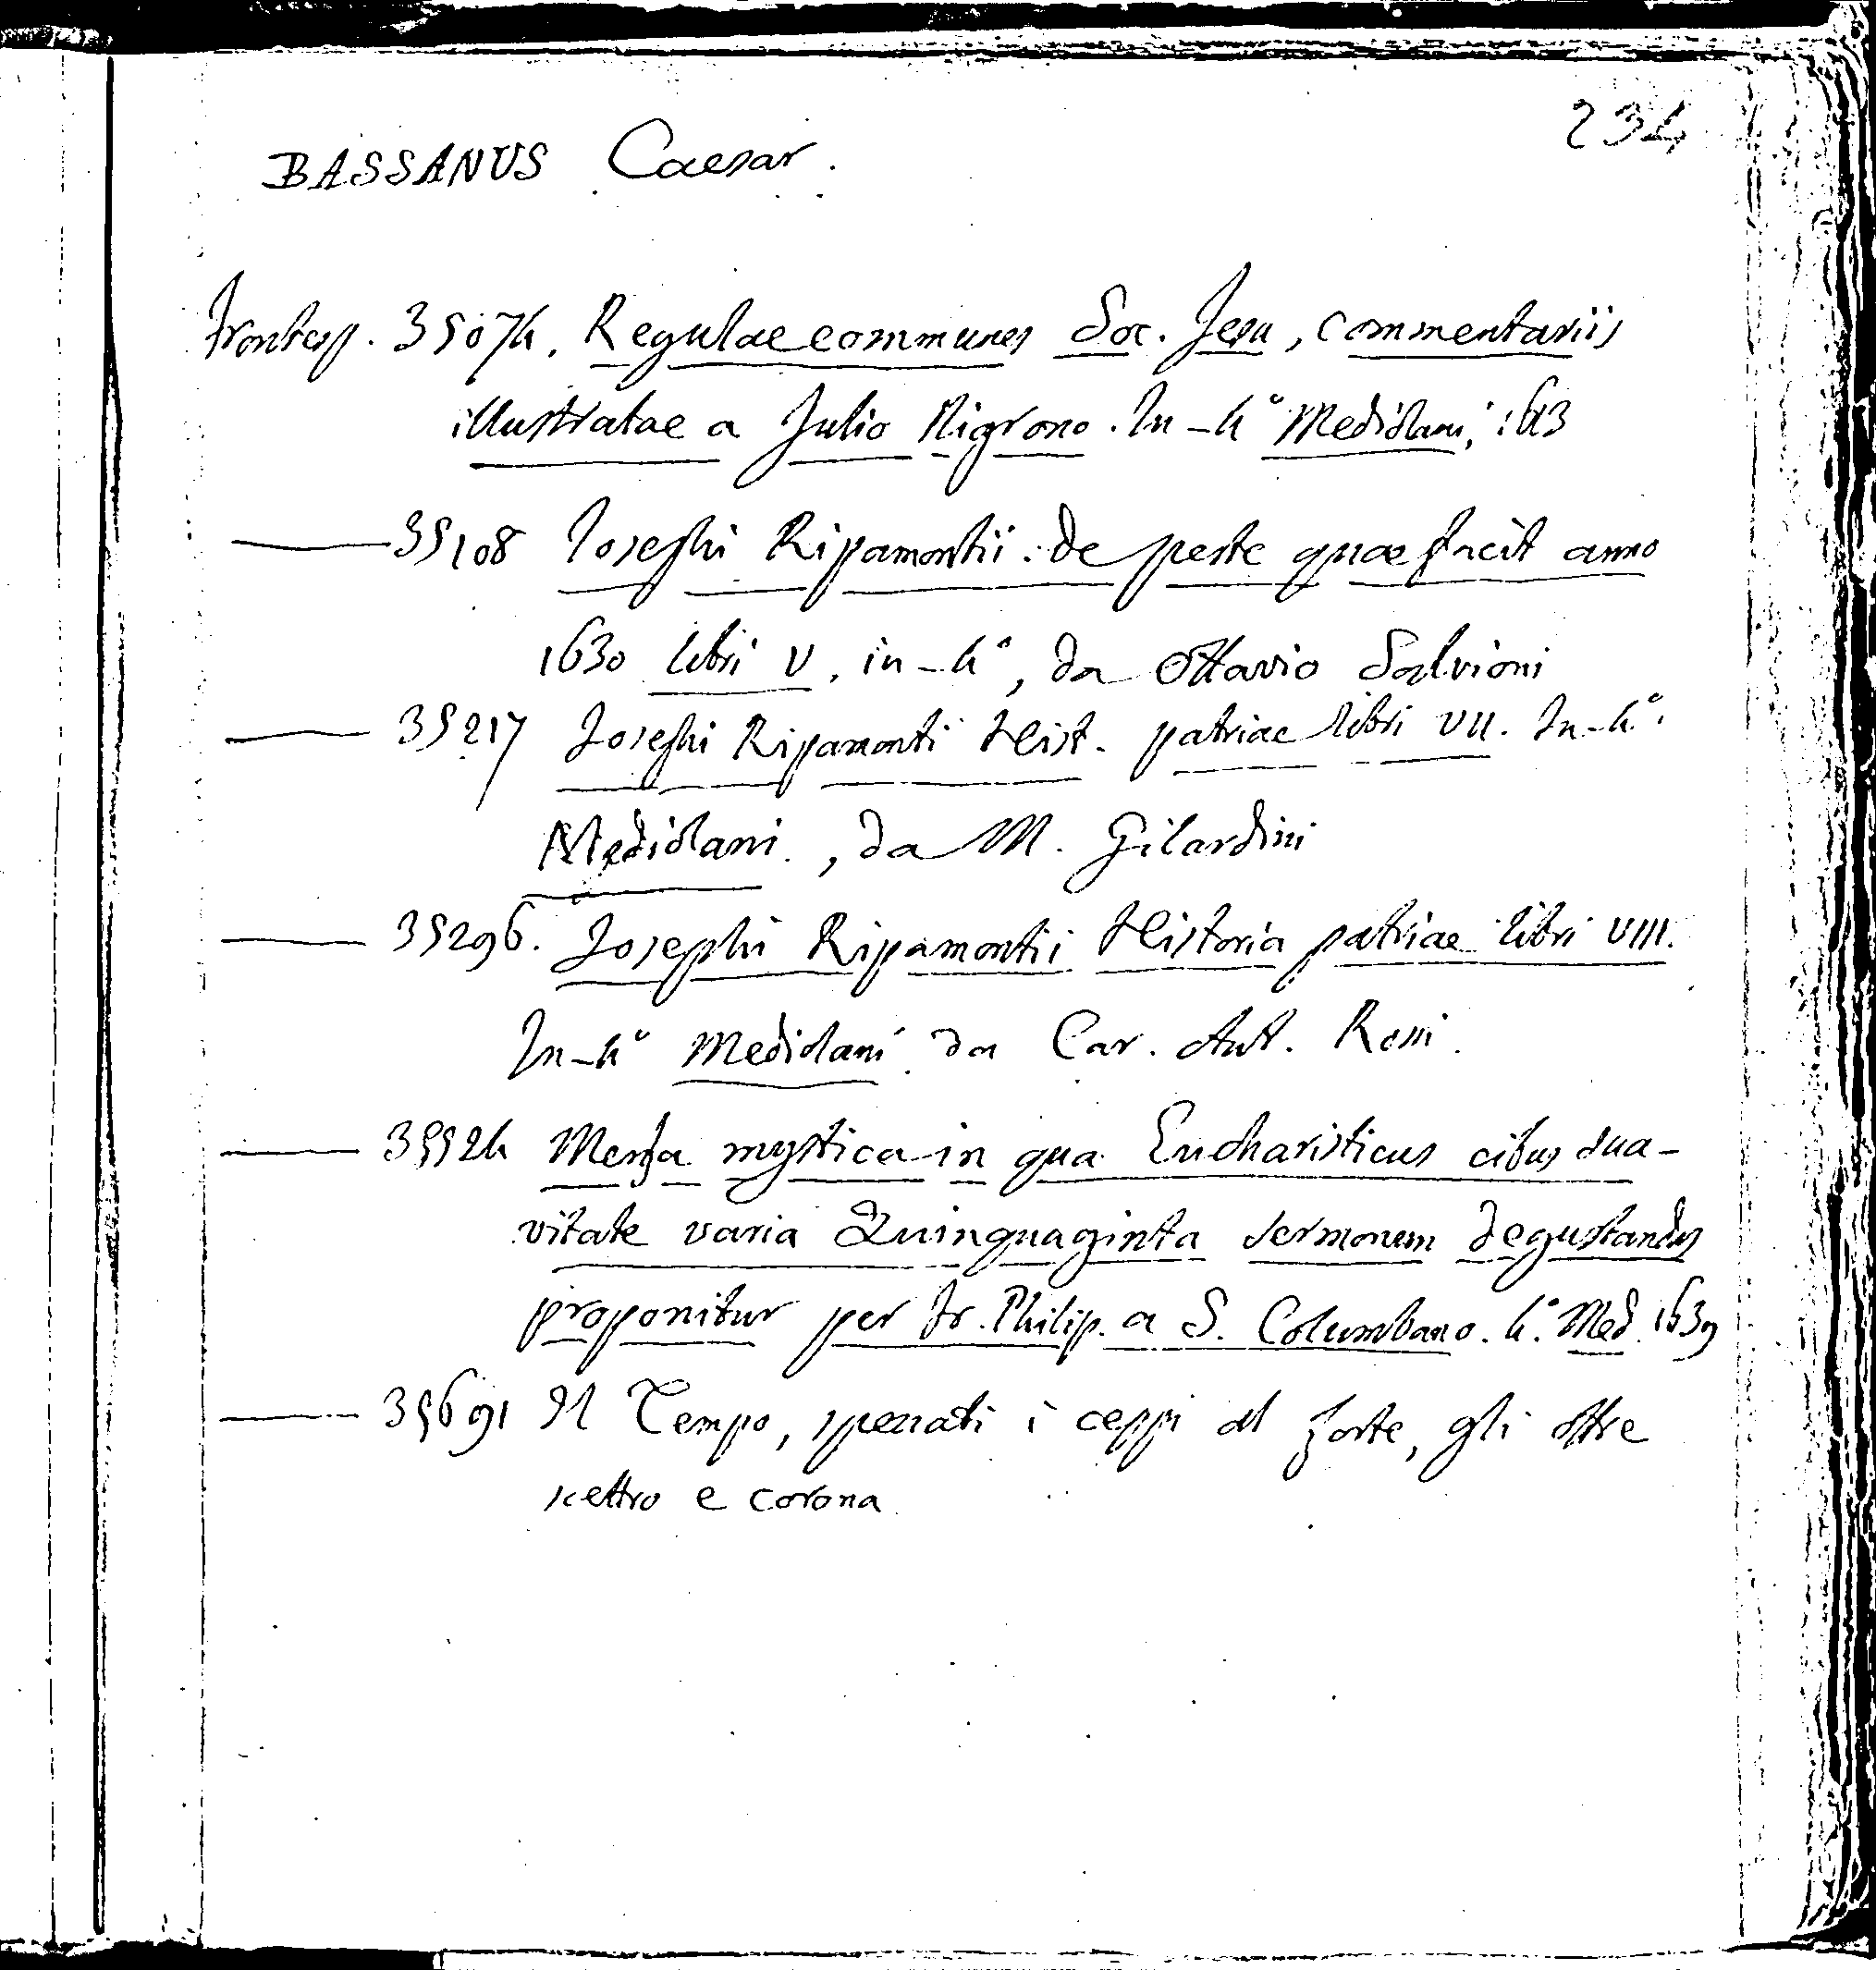 234
BASSANUS Caesar.
Frontesp. 35074. Regulae communes Soc. Jesu, commentariis
illustratae a Julio Nigrono. In-4° Mediolani, 1613
—— 35108 Josephi Ripamontii. de peste quae fuit anno
1630 libri V. in-4°, da Ottavio Salvioni
—— 35217 Josephi Ripamonti Hist. patriae libri VII. In-4°.
Mediolani, da M. Gilardini
—— 35296. Josephi Ripamontii Historia patriae libri VIII.
In-4° Mediolani da Car. Ant.
—— 35524 Mensa mystica in qua Eucharisticus cibus sua-
vitate varia Quinquaginta sermonum degustandus
proponitur per Fr. Philip. a S. Columbano. 4°. Med. 1639
—— 35691 Il Tempo, spezzati i ceppi al forte, gli offre
scettro e corona